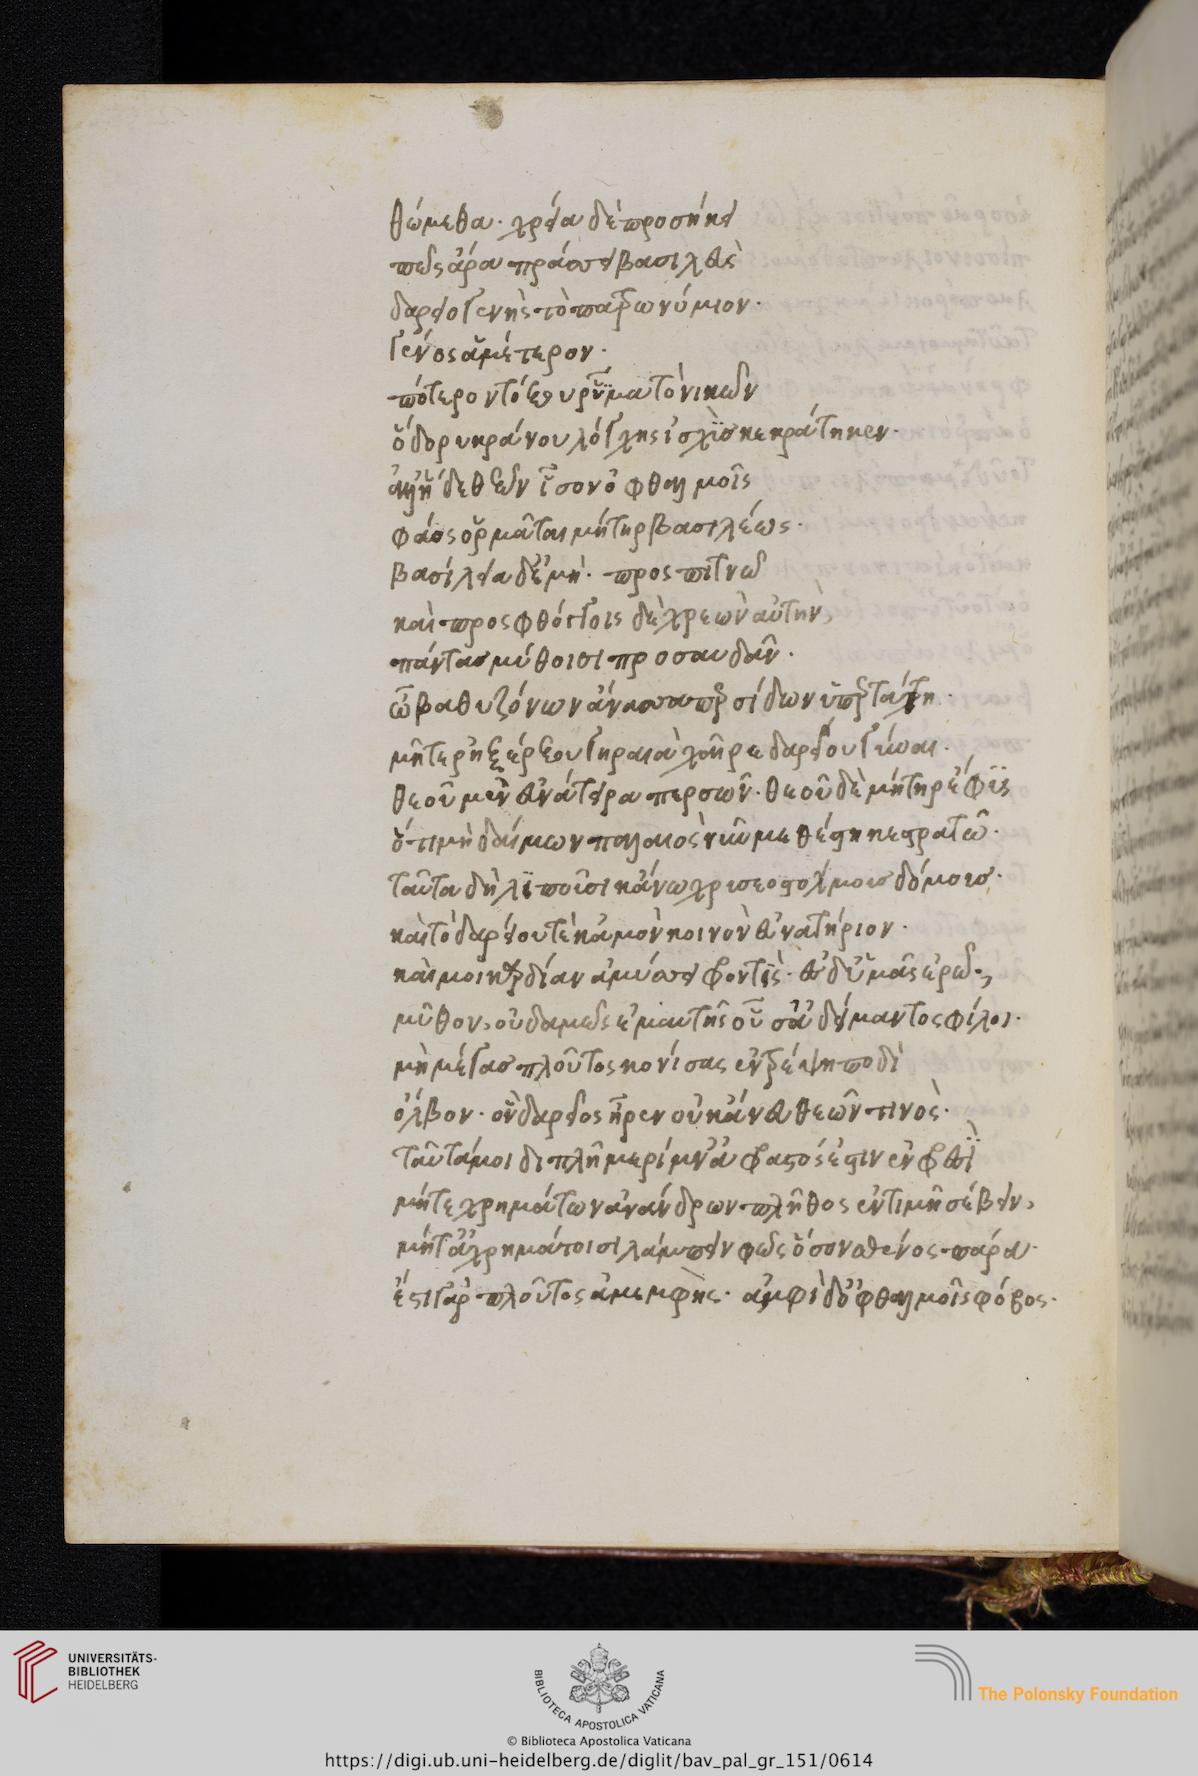 θώμεθα· χρεία δὲ προσήκει
πῶς ἄρα πράσσει βασιλεὺς
δαρειογενὴς τὸ πατρωνύμιον·
γένος ἁμέτερον·
πότερον τόξου ῥῦμα τὸ νικῶν
ὃ δορυκράνου λόγχης ἰσχὺς κεκράτηκεν·
ἀλλ' ἥδε θεῶν ἴσον ὀφθαλμοῖς
φάος ὁρμᾶται μήτηρ βασιλέως·
βασίλεια δ' ἐμή· προσπιτνῶ
καὶ προσφθόγγοις δὲ χρεὼν αὐτὴν,
πάντας μύθοισι προσαυδᾶν·
ὦ βαθυζώνων ἄνασσα περσίδων ὑπερτάτη·
μῆτερ ἡ ξέρξου γηραιὰ χαῖρε δαρείου γύναι·
θεοῦ μὲν εὐνάτειρα περσῶν· θεοῦ δὲ μήτηρ ἔφυς
ὅ τι μὴ δαίμων παλαιὸς νῦν μεθέστηκε στρατῶ·
ταῦτα δὴ λιποῦσ' ἱκάνω χρυσεοστόλμους δόμους·
καὶ τὸ δαρείου τε κἀμὸν κοινὸν εὐνατήριον·
καί μοι καρδίαν ἀμύσσει φροντίς· ἐς δ' ὑμᾶς ἐρῶ,
μῦθον, οὐδαμῶς ἐμαυτῆς οὖσ' ἀδείμαντος φίλοι·
μὴ μέγας πλοῦτος κονίσας οὖδας ἀντρέψῃ ποδὶ
ὄλβον· ὃν δαρεῖος ἦρεν οὐκ ἄνευ θεῶν τινός·
ταῦτά μοι διπλῆ μέριμν' ἄφραστός ἐστιν ἐν φρεσὶ
μήτε χρημάτων ἀνάνδρων πλῆθος ἐν τιμῆ σέβειν,
μήτ' ἀχρημάτοισι λάμπειν φῶς ὅσον σθένος πάρα·
ἔστι γὰρ πλοῦτος ἀμεμφὴς· ἀμφὶ δ' ὀφθαλμοῖς φόβος·
UNIVERSITÄTS-
BIBLIOTHEK
HEIDELBERG
BIBLIOTECA APOSTOLICA VATICANA
The Polonsky Foundation
© Biblioteca Apostolica Vaticana
https://digi.ub.uni-heidelberg.de/diglit/bav_pal_gr_151/0614